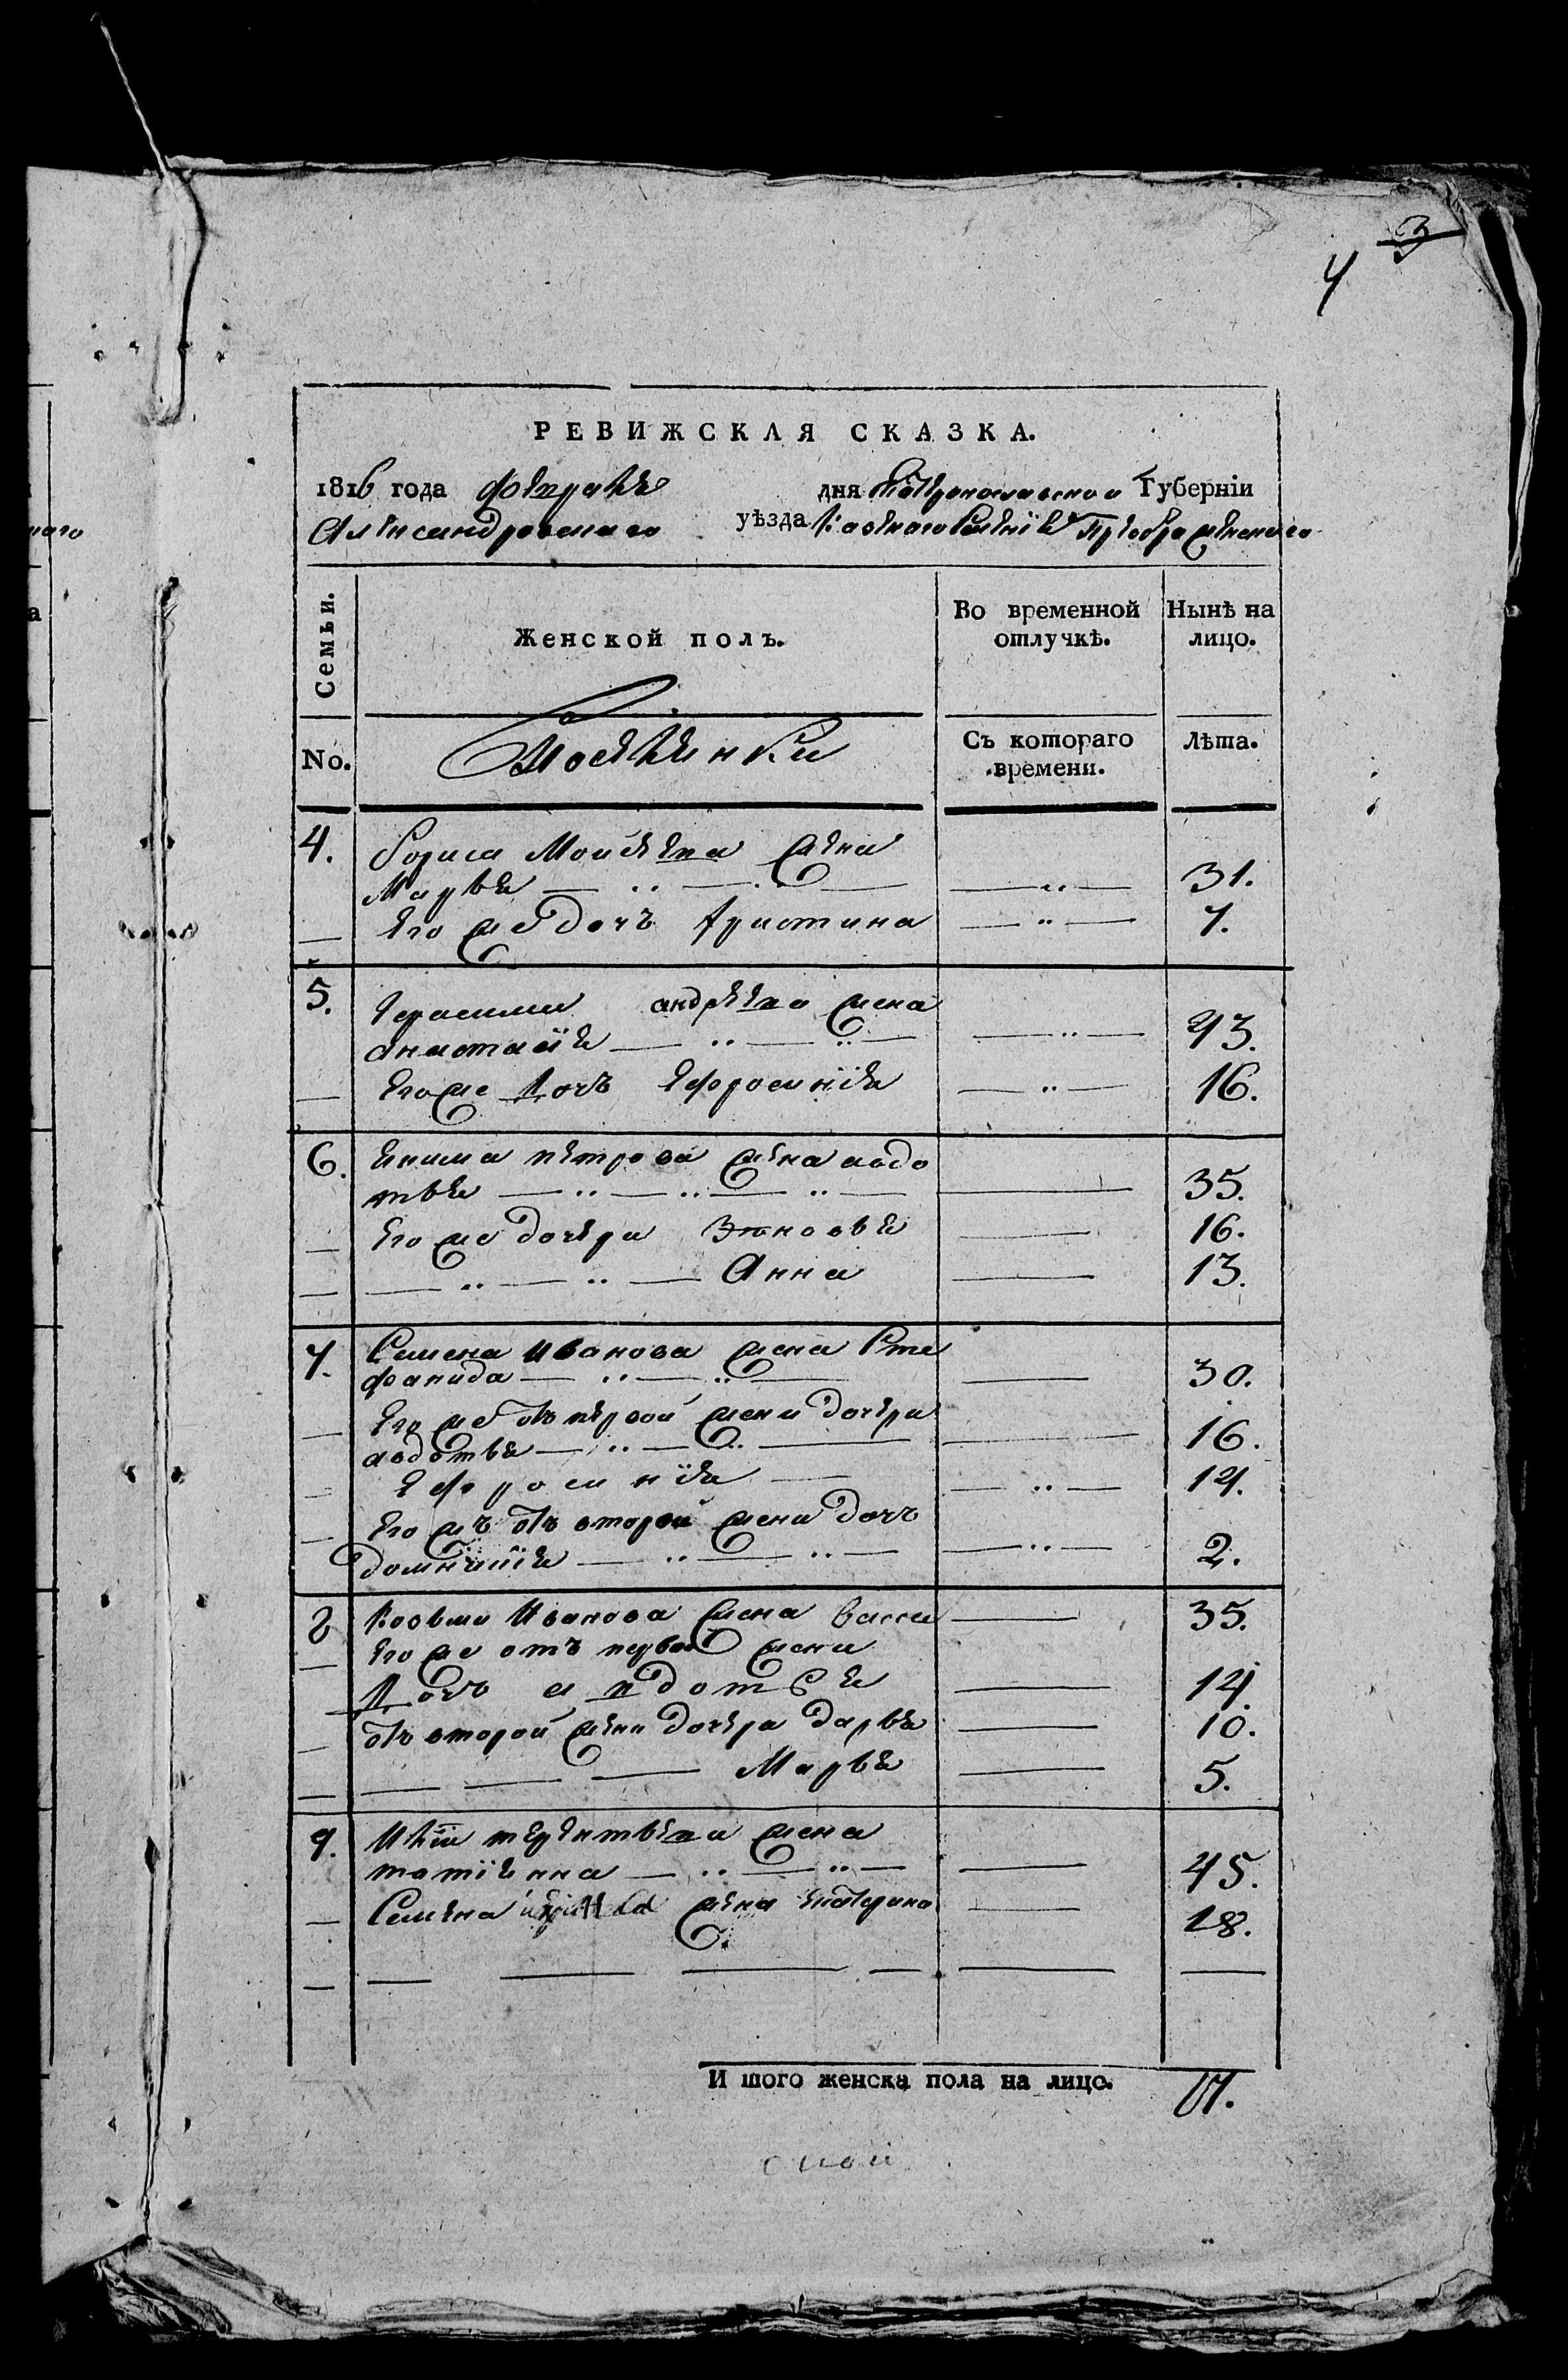 3
4
РЕВИЖСКАЯ СКАЗКА.
1816 года февраля дня Екатеринославской Губерніи
Александровскаго уѣзда Казеннаго Селенія Преображенскаго
Семьи. Женской полъ. Во временной отлучкѣ. Нынѣ на лицо.
No. Поселянки Съ котораго времени. Лѣта.
4. Бориса Моисеева жена
Марья 31.
Его же дочъ христина 7.
5. Герасима андреева жена
анастасія 43.
Его же дочъ Ефросинія 16.
6. Екима петрова жена авдо
тья 35.
Его же дочери Зеновья 16.
Анна 13.
7. Семена Иванова жена Сте
фанида 30.
Его же отъ первой жени дочери
авдотья 16.
Ефросинія 14.
Его жъ отъ второй жени дочъ
домникія 2.
8 Козьми Иванова жена Васса 35.
Его же отъ первой жени
дочъ авдотья 14
отъ второй жени дочери дарья 10.
Марья 5.
9. Ильи терентьева жена
татіянна 45.
Семена жена Екатерина 18.
И того женска пола на лицо. 17.